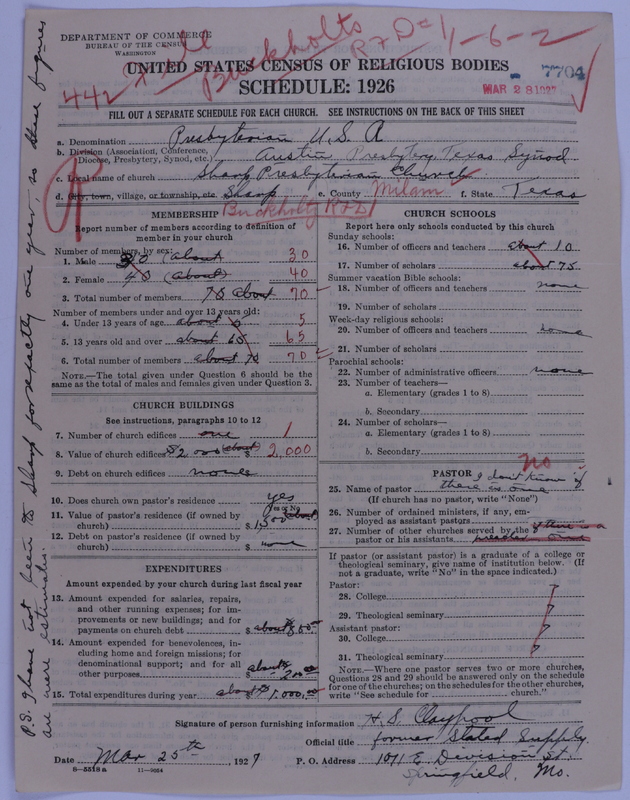 DEPARTMENT OF COMMERCE
BUREAU OF THE CENSUS
WASHINGTON
Buckholts
R7D=1-6-2
442
7704
MAR 28 1927
UNITED STATES CENSUS OF RELIGIOUS BODIES
SCHEDULE: 1926
FILL OUT A SEPARATE SCHEDULE FOR EACH CHURCH. SEE INSTRUCTIONS ON THE BACK OF THIS SHEET
a. Denomination Presbyterian U.S.A
b. Division (Association, Conference, Diocese, Presbytery, Synod, etc.) Austin Presbytery Texas Synod
c. Local name of church Sharp Presbyterian Church
d. City, town, village, or township, etc. Sharp e. County Milam f. State Texas
MEMBERSHIP
Report number of members according to definition of
member in your church
Number of members, by sex:
1. Male 30 about 30
2. Female 40 (about) 40
3. Total number of members 70 about 70
Number of members under and over 13 years old:
4. Under 13 years of age about 5 5
5. 13 years old and over about 65 65
6. Total number of members about 70 70
NOTE.—The total given under Question 6 should be the
same as the total of males and females given under Question 3.
CHURCH BUILDINGS
See instructions, paragraphs 10 to 12
7. Number of church edifices one 1
8. Value of church edifices $2000 (about) $ 2,000
9. Debt on church edifices none
10. Does church own pastor's residence yes
(Yes or No)
11. Value of pastor's residence (if owned by
church) $ 1500 about
12. Debt on pastor's residence (if owned by
church) $ none
EXPENDITURES
Amount expended by your church during last fiscal year
13. Amount expended for salaries, repairs,
and other running expenses; for im-
provements or new buildings; and for
payments on church debt $ about 800.00
14. Amount expended for benevolences, in-
cluding home and foreign missions; for
denominational support; and for all
other purposes $ about 200.00
15. Total expenditures during year about $ 1,000.00
CHURCH SCHOOLS
Report here only schools conducted by this church
Sunday schools:
16. Number of officers and teachers about 10
17. Number of scholars about 75
Summer vacation Bible schools:
18. Number of officers and teachers none
19. Number of scholars
Week-day religious schools:
20. Number of officers and teachers none
21. Number of scholars
Parochial schools:
22. Number of administrative officers none
23. Number of teachers—
a. Elementary (grades 1 to 8)
b. Secondary
24. Number of scholars—
a. Elementary (grades 1 to 8)
b. Secondary
PASTOR
no
I don't know if
25. Name of pastor there is one
(If church has no pastor, write "None")
26. Number of ordained ministers, if any, em-
ployed as assistant pastors
27. Number of other churches served by the
pastor or his assistants
If pastor (or assistant pastor) is a graduate of a college or
theological seminary, give name of institution below. (If
not a graduate, write "No" in the space indicated.)
Pastor:
28. College
29. Theological seminary
Assistant pastor:
30. College
31. Theological seminary
NOTE.—Where one pastor serves two or more churches,
Questions 28 and 29 should be answered only on the schedule
for one of the churches; on the schedules for the other churches,
write "See schedule for church."
Signature of person furnishing information H. S. Claypool
Official title former Stated Supply.
Date Mar 25th, 1927 P. O. Address 1011 E. Division St.
Springfield, Mo.
8—5518 a 11—9054
P.S. I have not been to Sharp for exactly one year—so these figures
are mere estimates.